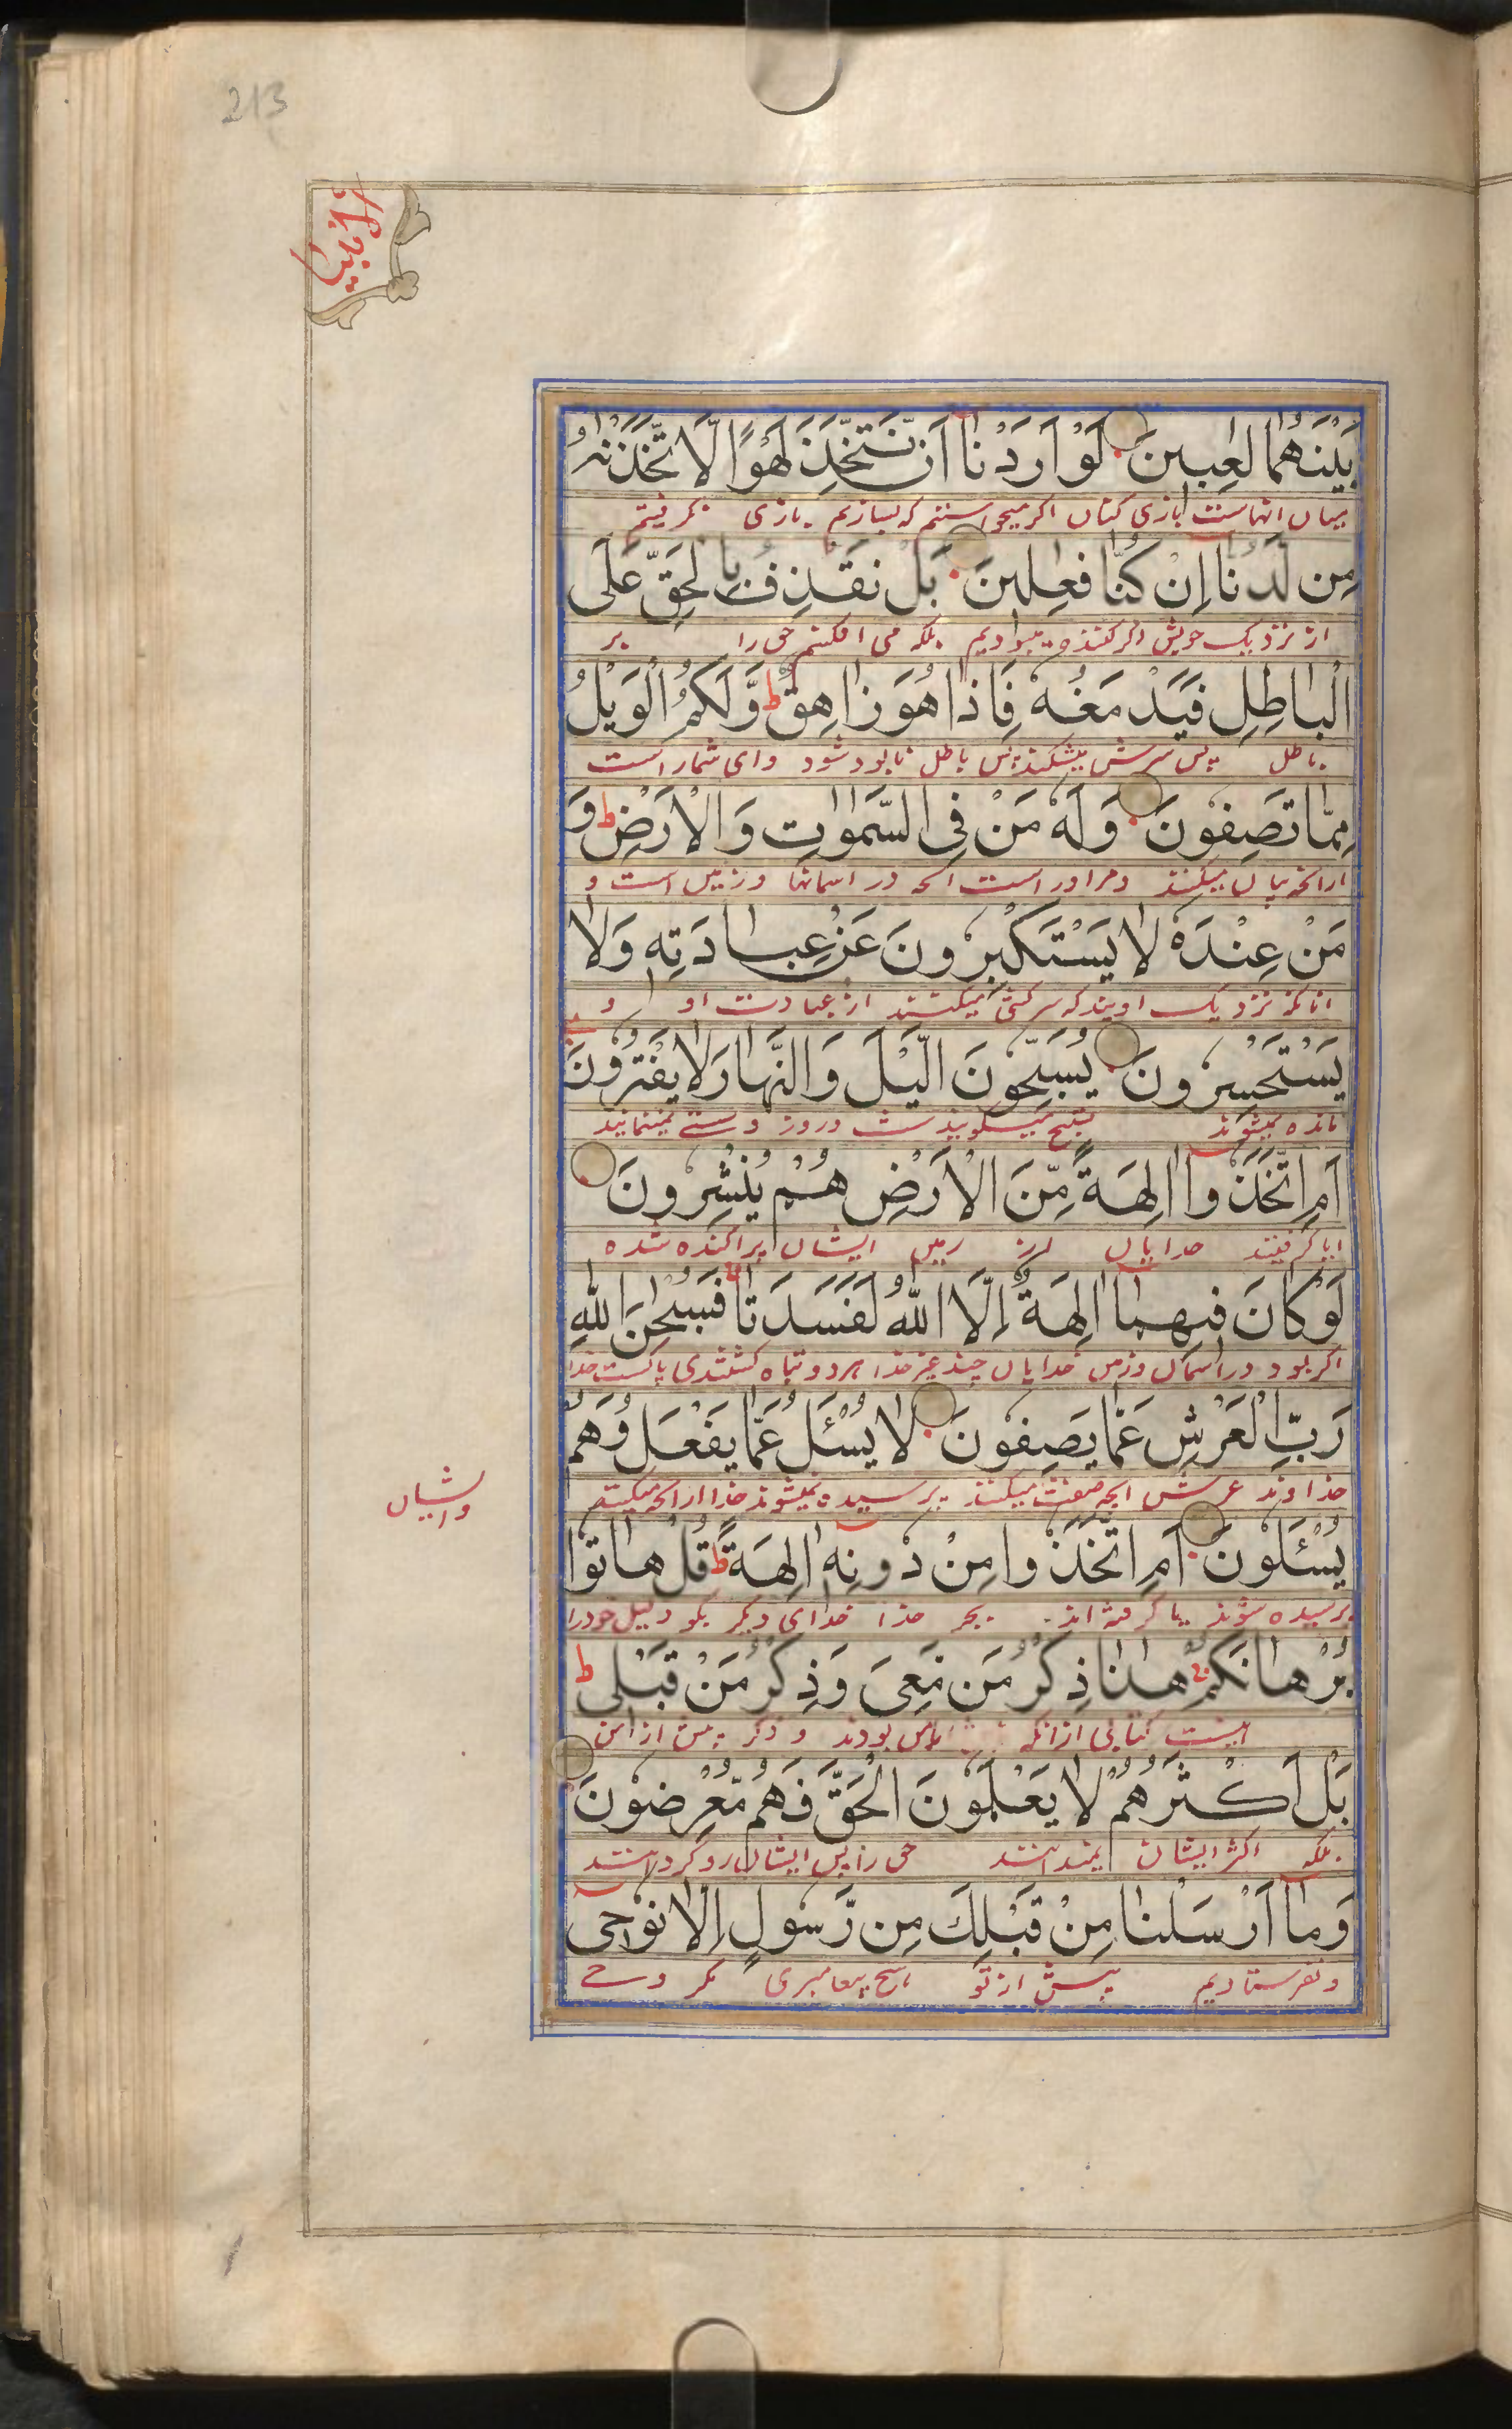 213
بَيْنَهُمَا لٰعِبِينَ لَوْ اَرَدْنَا اَنْ نَتَّخِذَ لَهْوًا لَّاتَّخَذْنٰهُ
میان انهاست بازی کنان اکر میخواستیم که بسازیم بازی بکرفتیم
مِن لَدُنَّا اِنْ كُنَّا فٰعِلِينَ بَلْ نَقْذِفُ بِالْحَقِّ عَلَى
از نزدیک خویش اکر کننده میبودیم بلکه می افکنیم حق را بر
الْبَاطِلِ فَيَدْمَغُهُ فَاِذَا هُوَ زَاهِقٌ ط وَّلَكُمُ الْوَيْلُ
باطل پس سرش میشکند پس باطل نابود شود وای شمار است
مِمَّا تَصِفُونَ وَلَهُ مَنْ فِى السَّمٰوٰتِ وَالْاَرْضِ ط وَ
ازانچه بیان میکنند و مر اور است انچه در اسمانها و زمین است و
مَنْ عِنْدَهُ لَا يَسْتَكْبِرُونَ عَنْ عِبَادَتِهِ وَلَا
انانکه نزدیک اویند که سرکشی نمیکنند از عبادت او و
يَسْتَحْسِرُونَ يُسَبِّحُونَ الَّيْلَ وَالنَّهَارَ لَا يَفْتُرُونَ
مانده نمیشوند تسبیح میکویند شب و روز و سستی نمینمایند
اَمِ اتَّخَذُوا اٰلِهَةً مِّنَ الْاَرْضِ هُمْ يُنْشِرُونَ
ایا کرفتند خدایان از زمین ایشان پراکنده شده
لَوْ كَانَ فِيهِمَا اٰلِهَةٌ اِلَّا اللّٰهُ لَفَسَدَتَا فَسُبْحٰنَ اللّٰهِ
اکر بود در اسمان و زمین خدایان چند غیر خدا هر دو تباه کشتندی پاکست خدا
رَبِّ الْعَرْشِ عَمَّا يَصِفُونَ لَا يُسْئَلُ عَمَّا يَفْعَلُ وَهُمْ
خداوند عرش انچه صفت میکنند پرسیده نمیشوند خدا ازانچه میکند
وایشان
يُسْئَلُونَ اَمِ اتَّخَذُوا مِنْ دُونِهِ اٰلِهَةً ط قُلْ هَاتُوْا
پرسیده شوند یا کرفته اند بجز خدا خدای دیکر بکو دلیل خود را
بُرْهَانَكُمْ هٰذَا ذِكْرُ مَن مَّعِىَ وَذِكْرُ مَنْ قَبْلِى ط
اینست کتابی ازانکه بامن بودند و ذکر پیش از من
بَلْ اَكْثَرُهُمْ لَا يَعْلَمُونَ الْحَقَّ فَهُمْ مُّعْرِضُونَ
بلکه اکثر ایشان نمیدانند حق را پس ایشان رو کردانند
وَمَا اَرْسَلْنَا مِنْ قَبْلِكَ مِن رَّسُولٍ اِلَّا نُوْحِى
و نفرستادیم پیش از تو هیچ پیغامبری مکر وحی